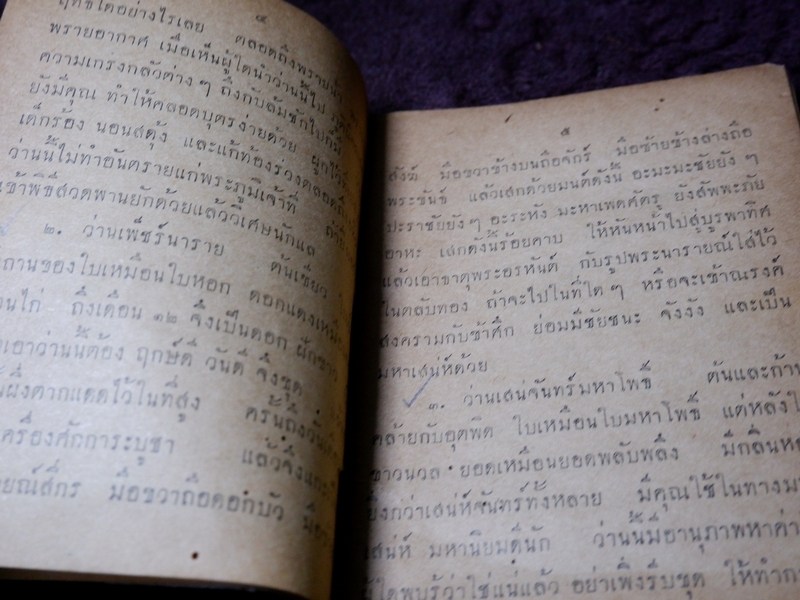 ๔
ฤทธิ์ได้อย่างไรเลย ตลอดถึงพรายน้ำ
พรายอากาศ เมื่อเห็นผู้ใดนำว่านนี้ไป
ความเกรงกลัวต่าง ๆ ถึงกับล้มชักไปก็มี
ยังมีคุณ ทำให้คลอดบุตรง่ายด้วย ผูกไว้
เด็กร้อง นอนสดุ้ง และแก้ท้องร่วงตลอดถึง
ว่านนี้ไม่ทำอันตรายแก่พระภูมิเจ้าที่ ถ้า
เข้าพิธีสวดพานยักด้วยแล้ววิเศษนักแล
๒. ว่านเพ็ชร์นาราย ต้นเขียว
ก้านของใบเหมือนใบหอก ดอกแดงเหมือน
ถึงเดือน ๑๒ จึงเป็นดอก ผักขาว
เอาว่านนี้ต้อง ฤกษ์ดี วันดี จึงขุด
ผึ่งตากแดดไว้ในที่สูง ครั้นถึงวัน
เครื่องสักการะบูชา แล้วจึงแกะ
สี่กร มือขวาถือดอกบัว มือ
๕
สังข์ มือขวาข้างบนถือจักร์ มือซ้ายข้างล่างถือ
พระขันธ์ แล้วเสกด้วยมนต์ดังนี้ อะมะมะชัยยัง ๆ
ปะราชัยยัง ๆ อะระหัง มะหาเพดศัตรู ยังสัพพะภัย
อาหะ เสกดังนี้ร้อยคาบ ให้หันหน้าไปสู่บูรพาทิศ
แล้วเอาธาตุพระอรหันต์ กับรูปพระนารายณ์ใส่ไว้
ในตลับทอง ถ้าจะไปในที่ใด ๆ หรือจะเข้าณรงค์
สงครามกับข้าศึก ย่อมมีชัยชนะ จังงัง และเป็น
มหาเสน่ห์ด้วย
๓. ว่านเสน่จันทร์มหาโพธิ์ ต้นและก้าน
คล้ายกับอุตพิด ใบเหมือนใบมหาโพธิ์ แต่หลังใบ
ขาวนวล ยอดเหมือนยอดพลับพลึง มีกลิ่นหอม
ยิ่งกว่าเสน่ห์จันทร์ทั้งหลาย มีคุณใช้ในทางมหา
เสน่ห์ มหานิยมดีนัก ว่านนี้มีอานุภาพหาค่า
ผู้ใดพบรู้ว่าใช่แน่แล้ว อย่าเพิ่งรีบขุด ให้ทำการ